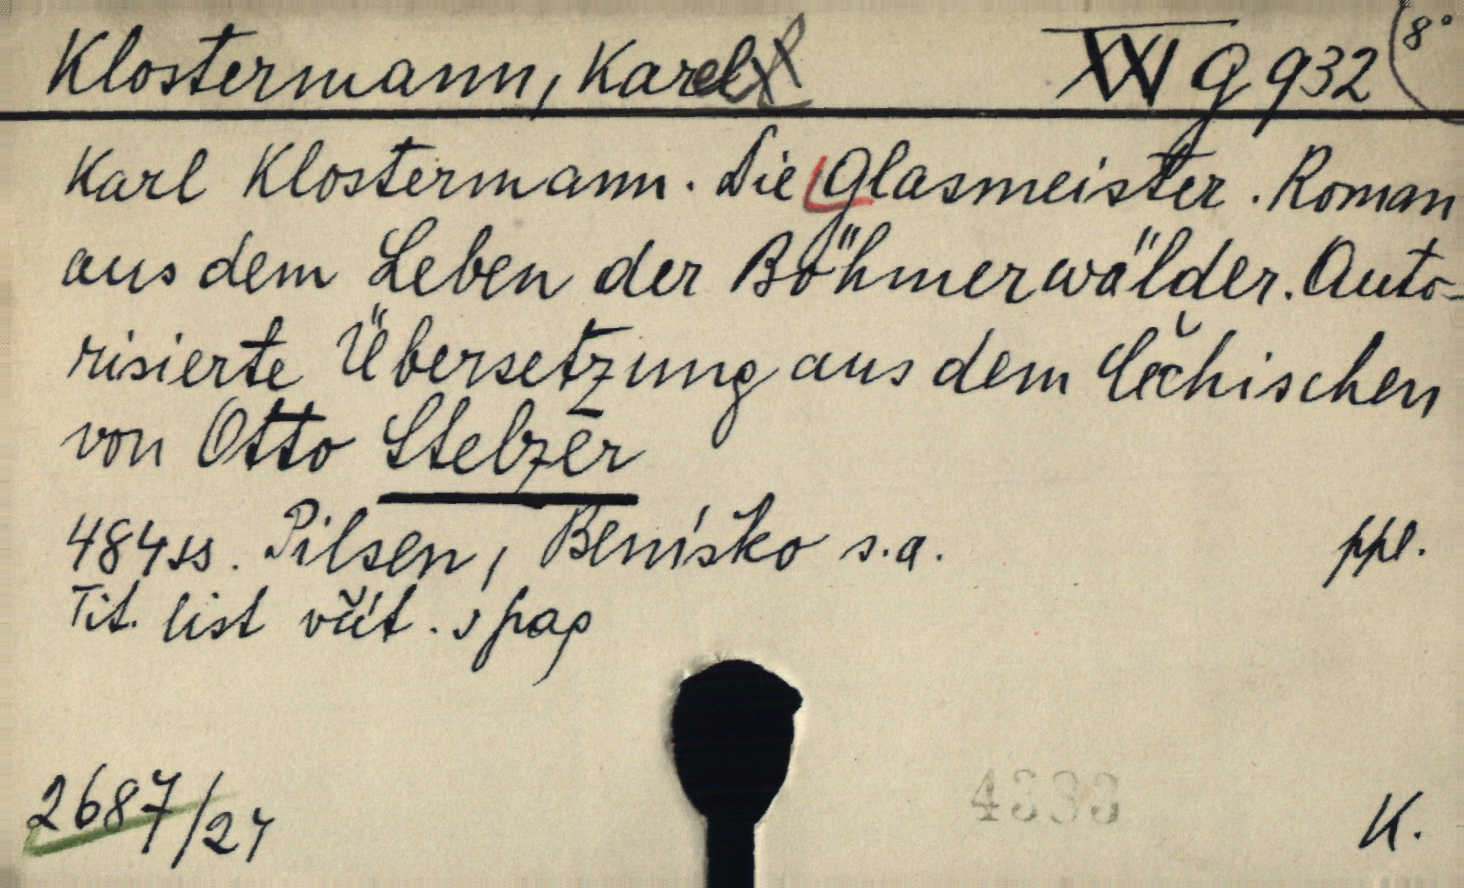 Klostermann, Karel XVI G 932 8°
Karl Klostermann. Die Glasmeister. Roman
aus dem Leben der Böhmerwälder. Auto-
risierte Übersetzung aus dem Čechischen
von Otto Stelzer
484ss. Pilsen, Beníško s.a. ppl.
Tit. list včít. v pag
2687/27 4333 K.